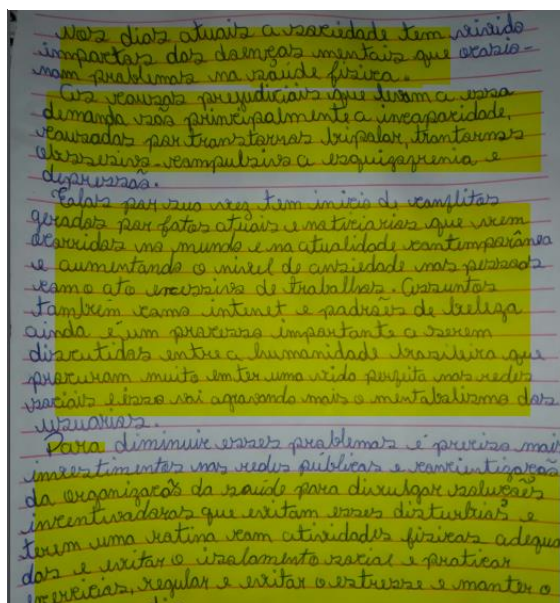 Nos dias atuais a sociedade tem vivido
impactos das doenças mentais que ocasio-
nam problemas na saúde física.
As causas prejudiciais que levam a essa
demanda são principalmente a incapacidade,
causadas por transtornos bipolar, trantornos
obssesivo-compulsivo a esquizofrenia e
depressão.
Ealas por sua vez tem início de conflitos
gerados por fatos atuais e noticiarias que vem
ocorridos no mundo e na atualidade contemporânea
e aumentando o nivel de ansiedade nas pessoas
como ato excessivo de trabalhos. Assuntos
também como intenet e padrões de beleza
ainda é um processo importante a serem
discutidos entre a humanidade brasileira que
procuram muito em ter uma vida perfeita nas redes
sociais e isso vai agravando mais o mentabalismo dos
usuarios.
Para diminuir esses problemas é preciso mais
investimentos nas redes públicas e
da organizaçõs da saúde para divulgar soluções
incentivadoras que evitam esses disturbios e
terem uma rotina com atividades físicas adequa
das e evitar o isolamento social e praticar
exercicios, regular e evitar o estresse e manter o